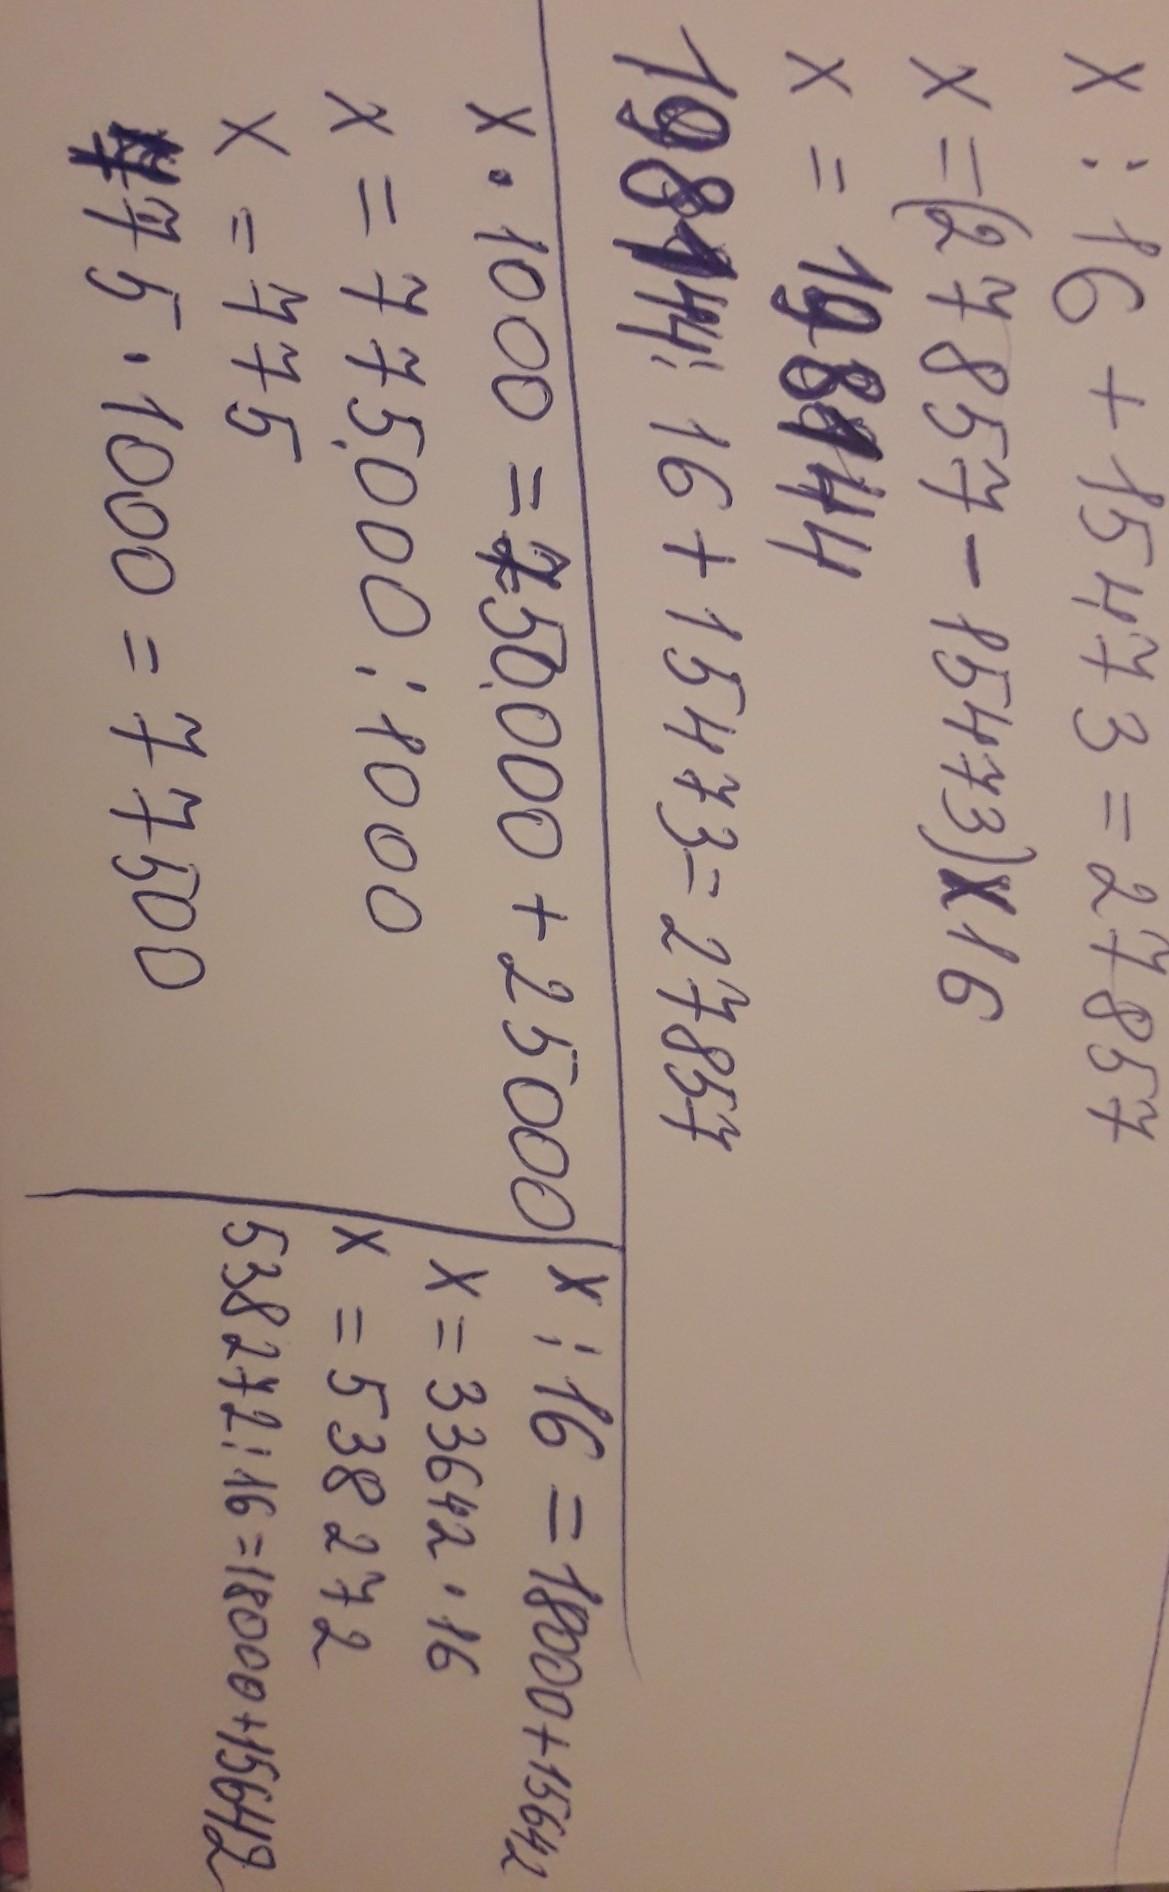 x : 16 + 15473 = 27857
x = (27857 - 15473) x 16
x = 198144
198144 : 16 + 15473 = 27857
x · 1000 = 750.000 + 25000
x = 775.000 : 1000
x = 775
775 · 1000 = 77500
x : 16 = 18000 + 15642
x = 33642 · 16
x = 538272
538272 : 16 = 18000 + 15642